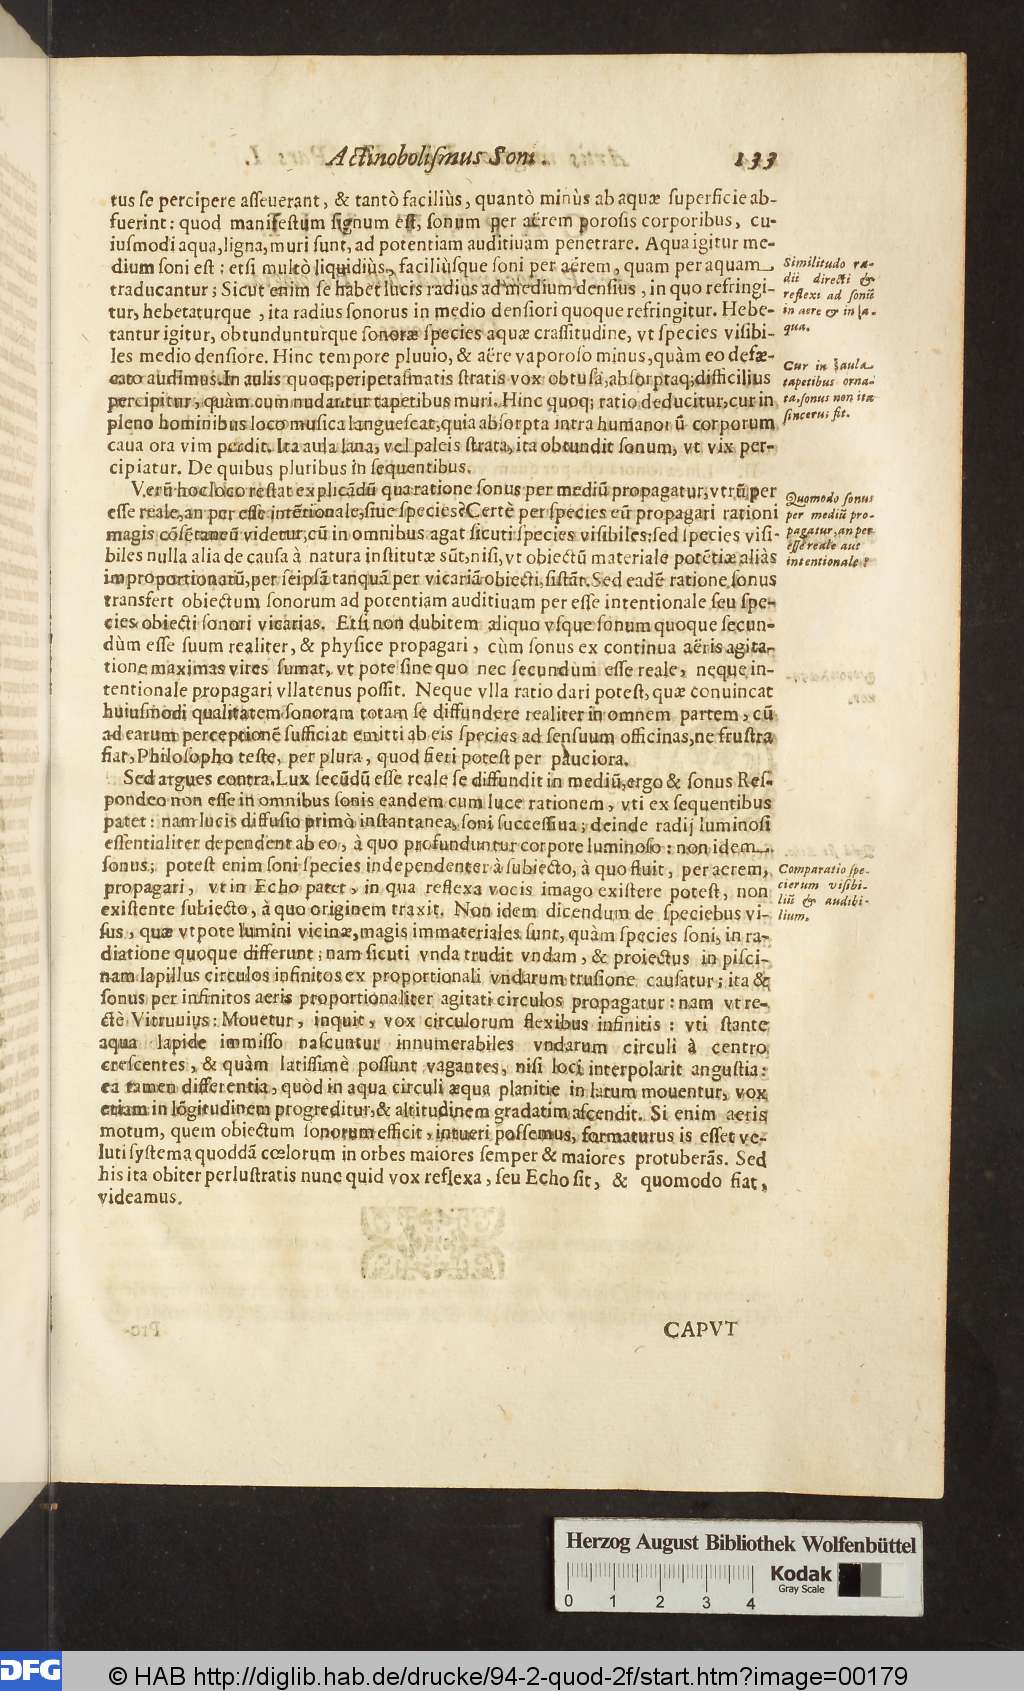 Actinobolismus Soni. 133
tus se percipere asseuerant, & tantò faciliùs, quantò minùs ab aquæ superficie ab-
fuerint: quod manifestum signum est, sonum per aërem porosis corporibus, cu-
iusmodi aqua, ligna, muri sunt, ad potentiam auditiuam penetrare. Aqua igitur me-
dium soni est: etsi multò liquidiùs, faciliùsque soni per aërem, quam per aquam
traducantur; Sicut enim se habet lucis radius ad medium densius, in quo refringi-
tur, hebetaturque, ita radius sonorus in medio densiori quoque refringitur. Hebe-
tantur igitur, obtundunturque sonoræ species aquæ crassitudine, vt species visibi-
les medio densiore. Hinc tempore pluuio, & aëre vaporoso minus, quàm eo defæ-
cato audimus. In aulis quoq; peripetasmatis stratis vox obtusa, absorptaq; difficilius
percipitur, quàm cum nudantur tapetibus muri. Hinc quoq; ratio deducitur, cur in
pleno hominibus loco musica languescat, quia absorpta intra humanorū corporum
caua ora vim perdit. Ita aula lana, vel paleis strata, ita obtundit sonum, vt vix per-
cipiatur. De quibus pluribus in sequentibus.
Similitudo ra-
dii directi &
reflexi ad sonū
in aere & in a-
qua.
Cur in aula
tapetibus orna-
ta, sonus non ita
sincerus sit.
Verū hoc loco restat explicādū qua ratione sonus per mediū propagatur, vtrū per
esse reale, an per esse intētionale, siue species? Certè per species eū propagari rationi
magis cōsētaneū videtur, cū in omnibus agat sicuti species visibiles: sed species visi-
biles nulla alia de causa à natura institutæ sūt, nisi, vt obiectū materiale potētiæ aliàs
improportionatū, per seipsā tanquā per vicariā obiecti, sistāt. Sed eadē ratione sonus
transfert obiectum sonorum ad potentiam auditiuam per esse intentionale seu spe-
cies obiecti sonori vicarias. Etsi non dubitem aliquo vsque sonum quoque secun-
dùm esse suum realiter, & physice propagari, cùm sonus ex continua aëris agita-
tione maximas vires sumat, vt pote sine quo nec secundùm esse reale, neque in-
tentionale propagari vllatenus possit. Neque vlla ratio dari potest, quæ conuincat
huiusmodi qualitatem sonoram totam se diffundere realiter in omnem partem, cū
ad earum perceptionē sufficiat emitti ab eis species ad sensuum officinas, ne frustra
fiat, Philosopho teste, per plura, quod fieri potest per pauciora.
Quomodo sonus
per mediū pro-
pagatur, an per
esse reale aut
intentionale?
Sed argues contra. Lux secūdū esse reale se diffundit in mediū, ergo & sonus Res-
pondeo non esse in omnibus sonis eandem cum luce rationem, vti ex sequentibus
patet: nam lucis diffusio primò instantanea, soni successiua; deinde radij luminosi
essentialiter dependent ab eo, à quo profunduntur corpore luminoso: non idem
sonus; potest enim soni species independenter à subiecto, à quo fluit, per aerem,
propagari, vt in Echo patet, in qua reflexa vocis imago existere potest, non
existente subiecto, à quo originem traxit. Non idem dicendum de speciebus vi-
sus, quæ vtpote lumini vicinæ, magis immateriales sunt, quàm species soni, in ra-
diatione quoque differunt; nam sicuti vnda trudit vndam, & proiectus in pisci-
nam lapillus circulos infinitos ex proportionali vndarum trusione causatur; ita &
sonus per infinitos aeris proportionaliter agitati circulos propagatur: nam vt re-
ctè Vitruuius: Mouetur, inquit, vox circulorum flexibus infinitis: vti stante
aqua lapide immisso nascuntur innumerabiles vndarum circuli à centro
crescentes, & quàm latissimè possunt vagantes, nisi loci interpolarit angustia:
ea tamen differentia, quòd in aqua circuli æqua planitie in latum mouentur, vox
etiam in lōgitudinem progreditur, & altitudinem gradatim ascendit. Si enim aeris
motum, quem obiectum sonorum efficit, intueri possemus, formaturus is esset ve-
luti systema quoddā cœlorum in orbes maiores semper & maiores protuberās. Sed
his ita obiter perlustratis nunc quid vox reflexa, seu Echo sit, & quomodo fiat,
videamus.
Comparatio spe-
cierum visibi-
liū & audibi-
lium.
CAPVT
Herzog August Bibliothek Wolfenbüttel
Kodak
Gray Scale
0 1 2 3 4
DFG
© HAB http://diglib.hab.de/drucke/94-2-quod-2f/start.htm?image=00179